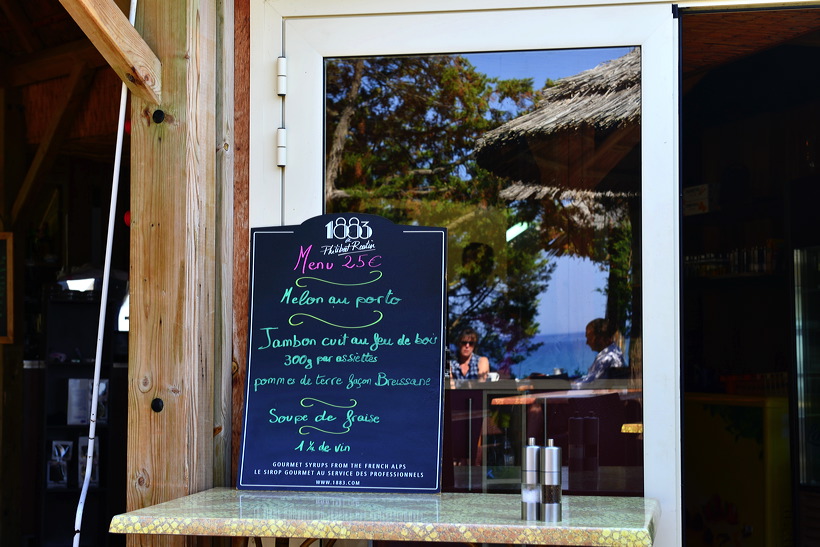 1883
de
Philibert Routin
Menu 25€
Melon au porto
Jambon cuit au feu de bois
300g par assiettes
pommes de terre façon Bressane
Soupe de fraise
1 ½ de vin
GOURMET SYRUPS FROM THE FRENCH ALPS
LE SIROP GOURMET AU SERVICE DES PROFESSIONNELS
WWW.1883.COM